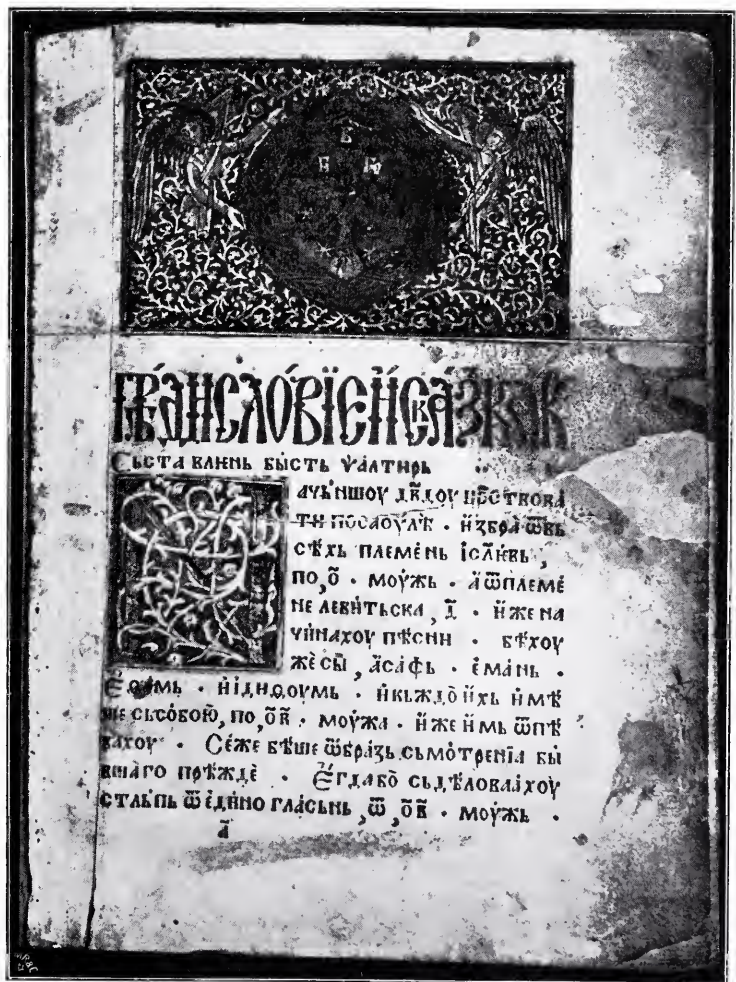 СЬСТАВЛЄНЬ БЫ́СТЬ ѰАЛТИРЬ
АЧЬ́НШОУ ДВ҃ДОУ ЦР҃СТВОВА
ТИ ПОСАОУ́ЛѢ · И҆ЗБРА̀ Ѿ ВЬ
СѢ́ХЬ ПЛЕМЕ́НЬ І҆СЛ҃ЄВЬ,
ПО,О҃ · МОУ́ЖЬ · А҆ Ѿ ПЛЕМЕ́
НЕ ЛЕВИ́ТЬСКА, І҃ · И҆ЖЕ НА
ЧИ́НАХОУ ПѢ́СНИ · БѢ́ХОУ
ЖѐСЫ, А҆СА́ФЬ · Е҆МА́НЬ ·
И҆КЬЖДО̀ И҆ХЬ И҆МѢ́
ШЕ СЬСО́БОЮ, ПО,О҃В · МОУ́ЖА · И҆ЖЕ И҆МЬ ѾПѢ
ВАХОУ · СЕ́ЖЕ БѢ́ШЕ Ѡ҆́БРАЗЬ СЬМО́ТРЕНЇА БЫ́
ВШАГО ПРѢ́ЖДЕ · Е҆ГДА́БО СЬДѢ́ЛОВААХОУ
СТЛЬ́ПЬ Ѿ Е҆ДИ́НО ГЛА́СЬНЬ, Ѿ,О҃В · МОУ́ЖЬ ·
А҃